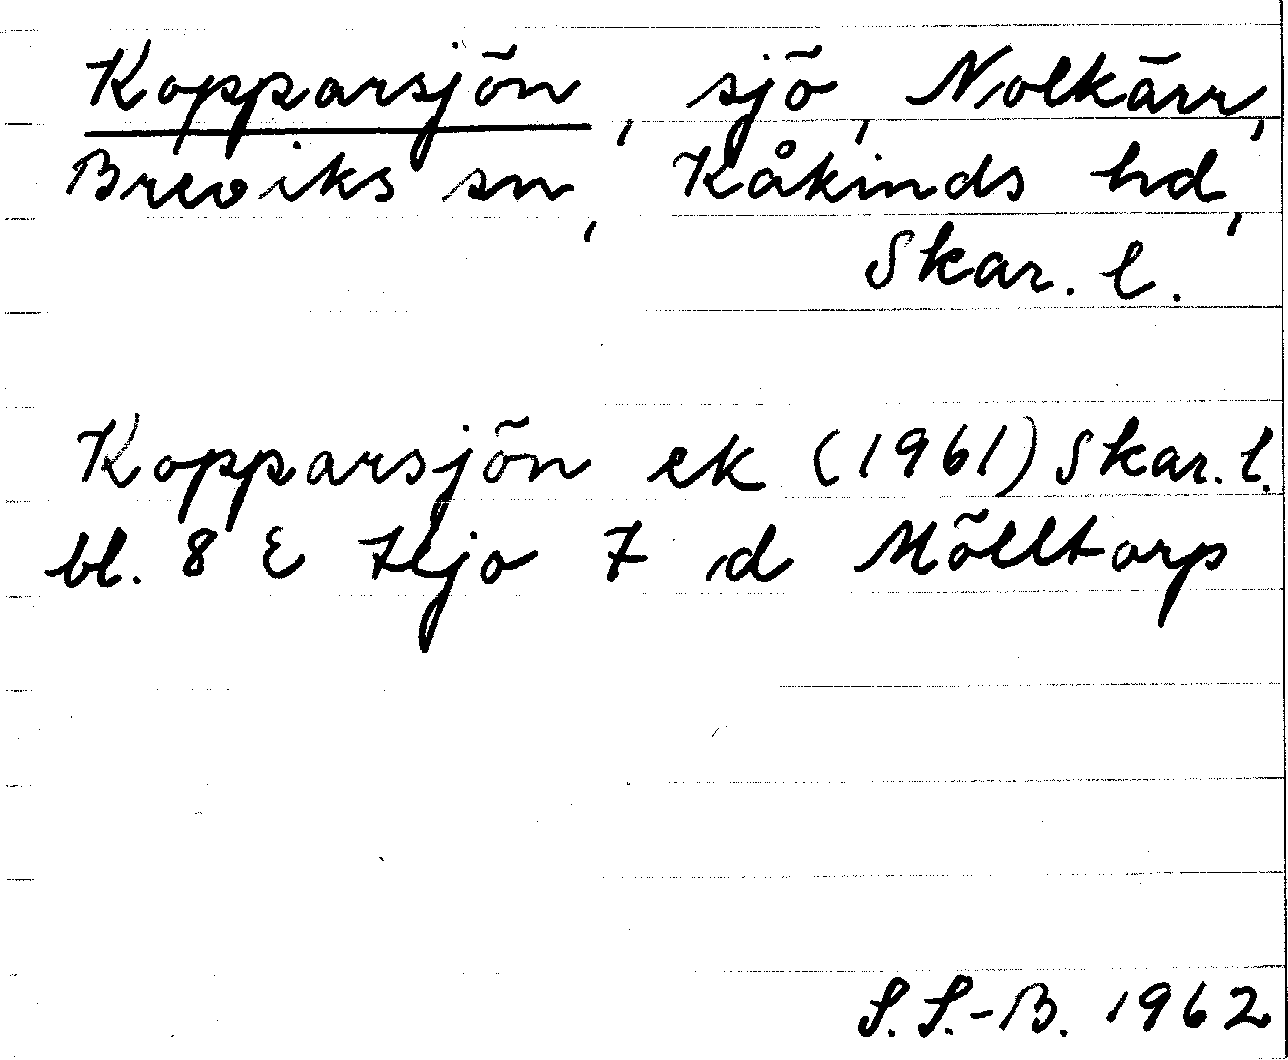 Kopparsjön, sjö, Nolkärr,
Breviks sn, Kåkinds hd,
Skar. l.
Kopparsjön ek (1961) Skar. l.
bl. 8 E Hjo 7 d Mölltorp
S. S.-B. 1962